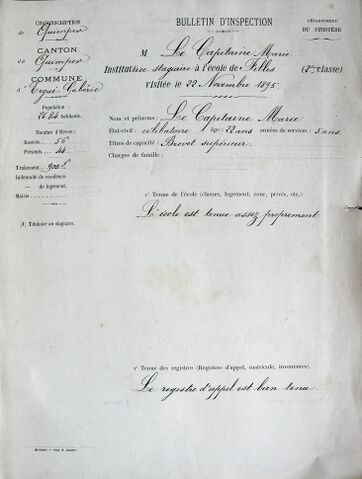 CIRCONSCRIPTION
de Quimper
CANTON
de Quimper
COMMUNE
d'Ergué-Gabéric
Population :
2624 habitants.
Nombre d'élèves :
Inscrits 56
Présents 44
Traitement 900 f
Indemnité de résidence.
— de logement.
Mairie
(1) Titulaire ou stagiaire.
BULLETIN D'INSPECTION
DÉPARTEMENT
DU FINISTÈRE
M Le Capitaine Marie
Institutrice stagiaire à l'école de Filles (2me classe)
Visitée le 22 Novembre 1895
Nom et prénoms : Le Capitaine Marie
État-civil : célibataire âge : 22 ans années de services : 5 ans.
Titres de capacité : Brevet supérieur.
Charges de famille :
1° Tenue de l'école (classes, logement, cour, privés, etc.)
L'école est tenue assez proprement
2° Tenue des registres (Registres d'appel, matricule, inventaires).
Le registre d'appel est bien tenu.